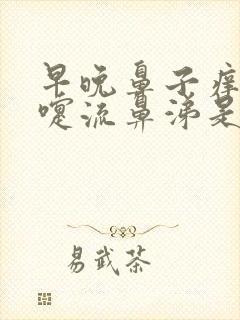 早晚鼻子痒
嚏流鼻涕是
易武茶